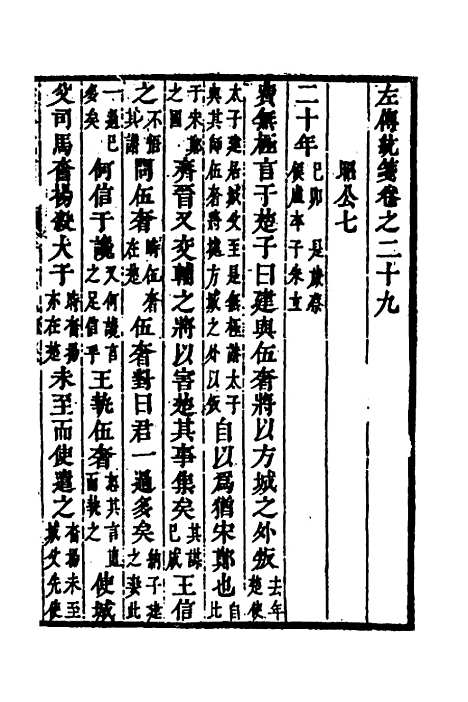 左傳統箋卷之二十九
昭公七
二十年己卯是歲蔡侯廬卒子朱立
費無極言于楚子曰建與伍奢將以方城之外叛去年楚使
太子建居城父至是無極譖太子與其師伍奢將據方城之外以叛自以為猶宋鄭也自比
于宋鄭之國齊晉又交輔之將以害楚其事集矣其謀已成王信
之不悟其譖問伍奢時伍奢在楚伍奢對曰君一過多矣納子建之妻此
一過已多矣何信于讒又何讒言之足信乎王執伍奢忿其言直而執之使城
父司馬奮揚殺大子時奮揚亦在楚未至而使遣之奮揚未至城父先使